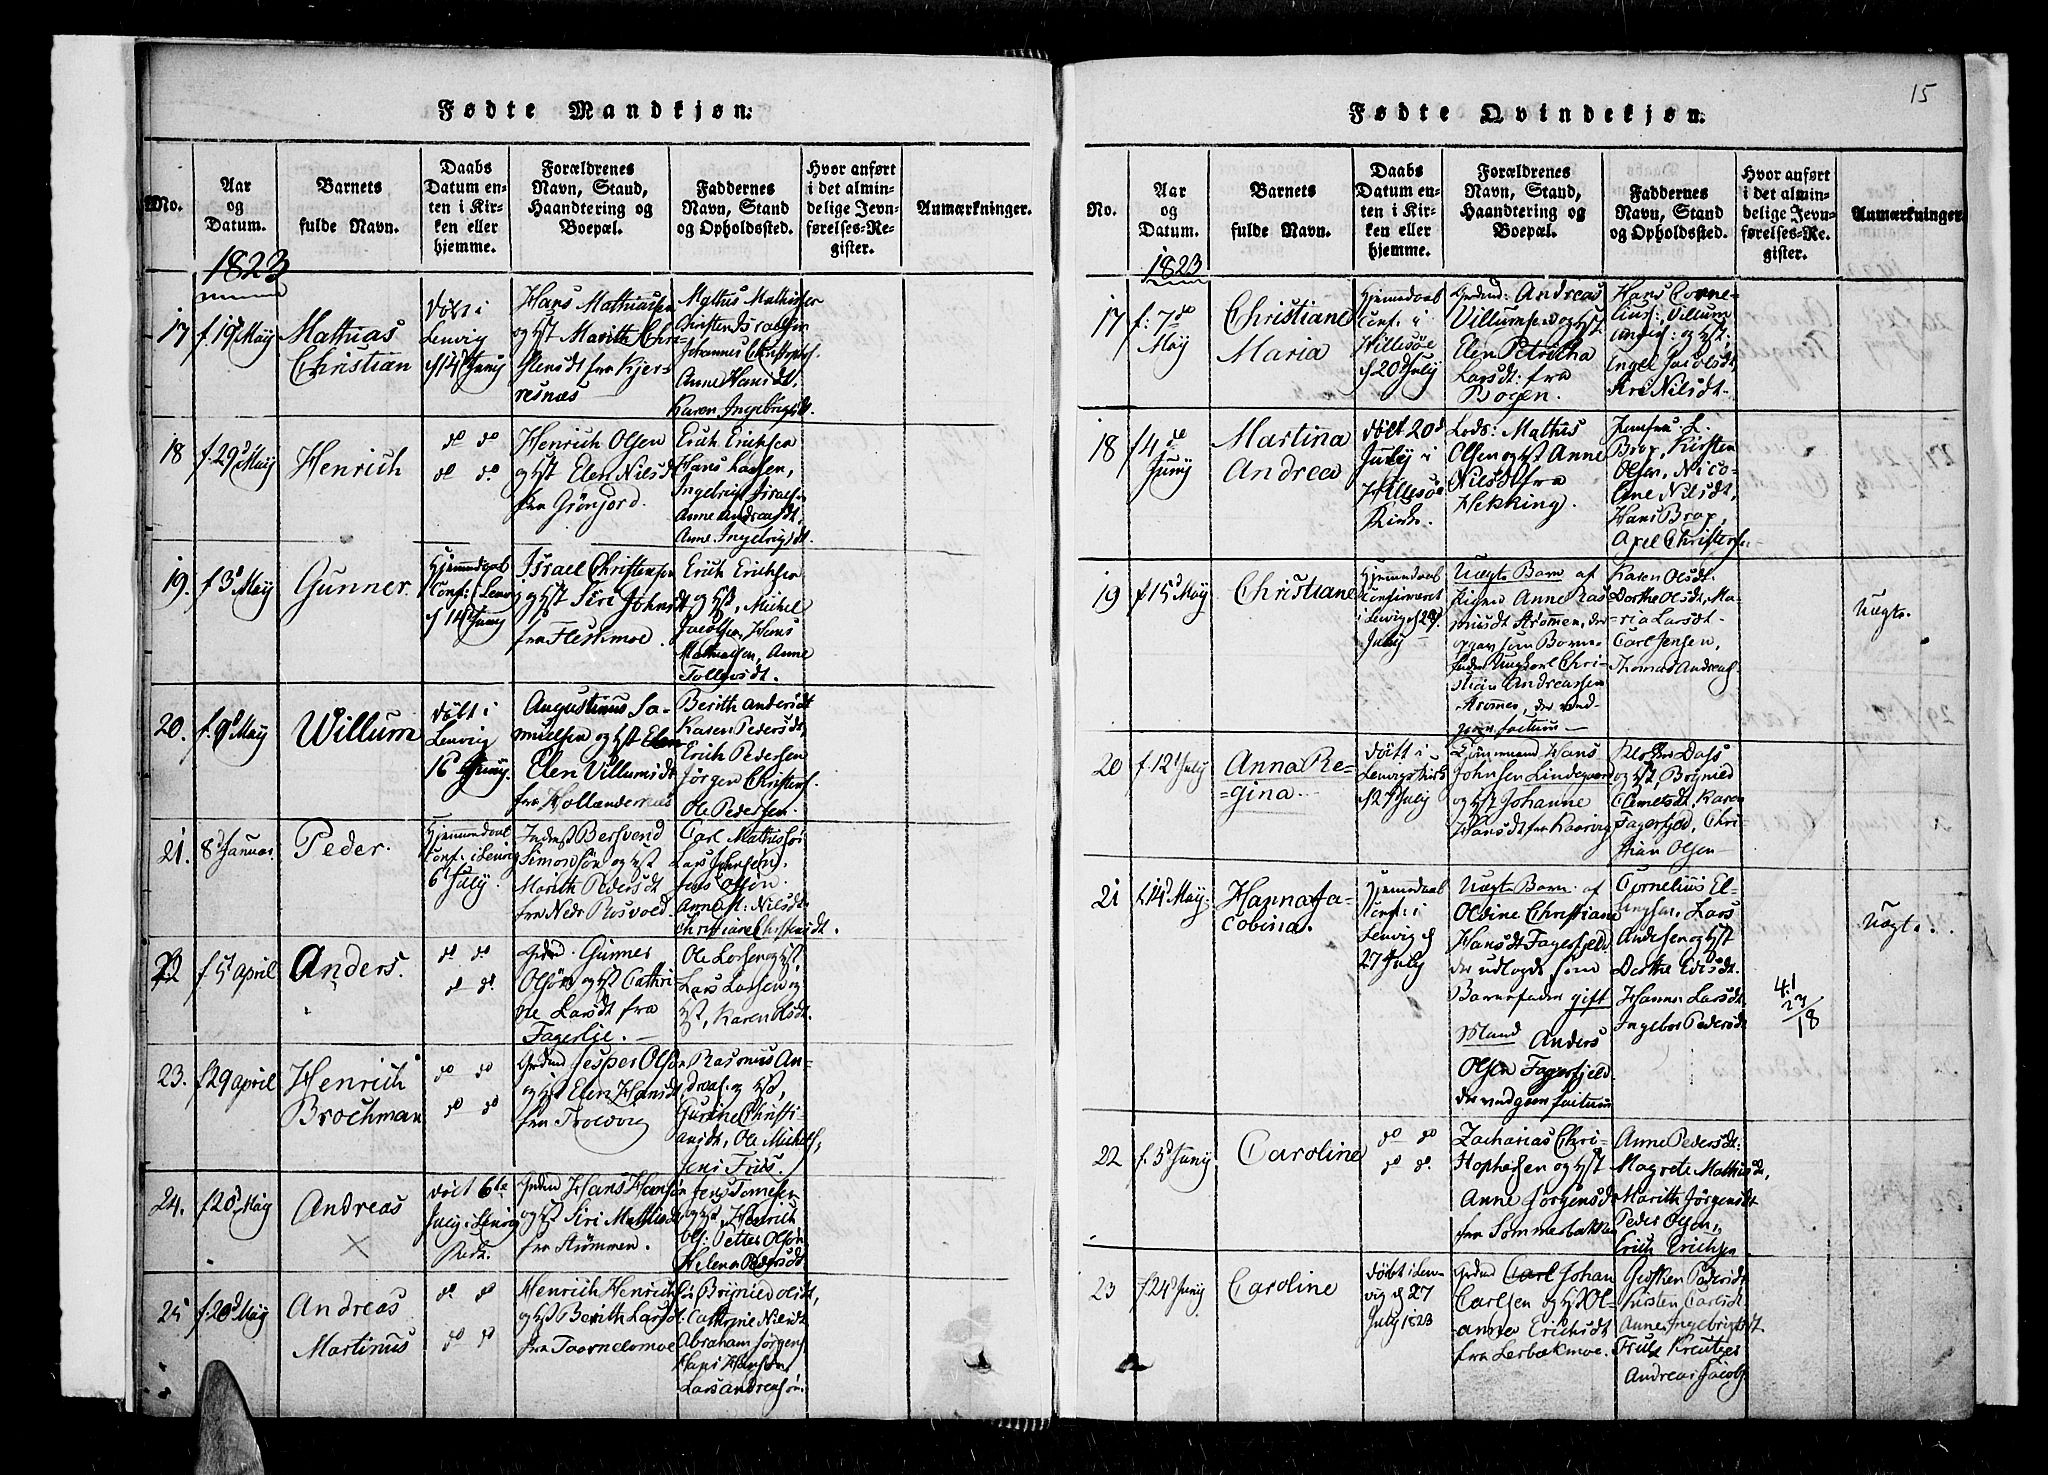 15
Fødte Mandkjøn.
No.
Aar
og
Datum.
Barnets
fulde Navn.
Daabs
Datum en-
ten i Kir-
ken eller
hjemme.
Forældrenes
Navn, Stand,
Haandtering og
Boepæl.
Faddernes
Navn, Stand
og Opholdssted.
Hvor anført
i det almin-
delige Jevn-
førelses-Re-
gister.
Anmærkninger.
1823
17
f. 19 May
Mathias
Christian
Døbt i
Lenvig
d 14 Juny
Hans Mathiassen
og Hst Marith Chri-
stensdt fra Kjer-
resnæs
Mathis Mathissen
Christen Israelsen
Johannes Christophs.
Anne Hansdt.
Karen Ingebrigtsdt.
18
f. 29 May
Henrich
do do
do do
Henrich Olsen
og Hst Elen Nilsdt
fra Grønjord.
Erich Erichsen
Hans Larsen,
Ingebrigt Israelsen
Anne Andreasdt.
Anne Ingebrigtsdt.
19.
f 3 May
Gunner.
Hjemmedøbt
Conf: i Lenvig
d 14 Juny
Israel Christensen
og Hst Siri Johnsdt
fra Fleskmoe
Erich Erichsen
og Hst, Michel
Jacobsen, Hans
Mathiasen, Anne
Tollefsdt.
20.
f. 9 May
Willum
Døbt i
Lenvig
16 Juny.
Augustinus Sa-
muelsen og Hst
Elen Villumsdt
fra Hollændernæs
Berith Andersdt
Karen Pedersdt,
Erich Pedersen
Jørgen Christens.
Ole Pedersen
21.
8 Januar.
Peder.
Hjemmedøbt
Conf. i Lenvig
6 July.
Inderst Bersvend
Simonsøn og Hst
Marith Pedersdt
fra Nedr Rosvold.
Carl Mathissøn
Lars Johnsøn.
Jens Olsøn.
Anne : Nilsdt
Christiane Christensdt.
22
f 5 april
Anders.
do do
do do
Grdmd. Gunner
Olsøn og Hst Cathri-
ne Larsdt fra
Fagerlie.
Ole Larsen og Hst,
Lars Larsen og
Hst, Karen Olsdt.
23.
f 29 april
Henrich
Brochman
do do
do do
Grdmd Jesper Olsøn
og Hst Elen Hansdt
fra Trolvig
Rasmus An-
dreas. og Hst,
Gurine Christi-
ansdt, Ole Michels,
Jens Friis.
24.
f 20 May
Andreas
Døbt 6te
July i Lenvig
Kirk.
Grdmd Hans Hansøn
og Hst Siri Mathisdt
fra Strømmen.
Jens Tomesen
og Hst, Henrich
Ols: Petter Olsøn
Helena Pedersdt
25
f 20 May
Andreas
Martinus
do do
do do
Henrich Henrichsøn
og Hst Berith Larsdt
fra Taarnelvmoe
Brynild Olsdt,
Cathrine Nilsdt
Abraham Jørgens.
Hans Hansøn
Lars Andreasøn.
Fødte Qvindekjøn.
No.
Aar
og
Datum.
Barnets
fulde Navn.
Daabs
Datum en-
ten i Kir-
ken eller
hjemme.
Forældrenes
Navn, Stand,
Haandtering og
Boepæl.
Faddernes
Navn, Stand
og Opholdssted.
Hvor anført
i det almin-
delige Jevn-
førelses-Re-
gister.
Anmærkninger.
1823
17
f: 7de
May
Christiane
Maria
Hjemmedøbt
Conf. i
Hillesøe
d 20 July
Grdmd: Andreas
Villumsen og Hst.
Elen Petritha
Larsdt: fra
Bogen.
Hans Corne-
lius: Villum
Anders: og Hst,
Engel Jacobsdt,
Siri Nilsdt.
18
f 4de
Juny
Martina
Andrea
Døbt 20d
July i
Hillesøe
Kirke.
Lods: Mathis
Olsen og Hst Anne
Nilsdt fra
Hekking.
Jomfru L.
Brox, Kirsten
Olsen, Nico-
line Nilsdt,
Hans Brox,
Axel Christens.
19
f 15 May
Christiane
Hjemmedøbt
Confirmeret
i Lenvig d 27
July
Uægte Barn af
Pigen Anne Ras
musdt Strømmen, der
opgav som Barne-
fader Ungkarl Chri-
stian Andreassen
Strømen, der ved-
gaaer factum
Karen Olsdt.
Dorthe Olsdt, Ma-
ria Larsdt
Carl Jensen,
Thomas Andreas
Uægte.
20
f. 12 July
Anna Re-
gina
Døbt i
Lenvigs Kirk
d 27 July
Hans
Johnsen Lindegaard
og Hst Johanne
Hansdt fra Kaarvig
Dass
og Hst, Brynild
Clemetsdt, Karen
Fagerfjeld, Chri-
stian Olsen
21
f. 14 May.
Hanna Ja-
cobina.
Hjemmedøbt
Conf: i
Lenvig d
27 July
Uægte Barn af
Oldine Christiane
Hansdt Fagerfjeld
der udlagde som
Barnefader gift
Mand Anders
Olsen Fagerfjeld
der vedgaaer factum
Cornelius El-
lingsen, Lars
Andersen og Hst
Dorthe Ericsdt.
Hanna Larsdt,
Ingebor Pedersdt
4.1
23
/18
Uægte.
22
f. 5 Juny
Caroline
do do
do do.
Zacharias Chri-
stophersen og Hst
Anne Jørgensdt
fra Sommerbakken
Anne Pedersdt.
Magrete Mathisdt,
Marith Jørgensdt
Peder Olsen,
Erich Erichsen
23
f. 24 Juny
Caroline
Døbt i Len-
vig d 27
July 1823
Grdmd Carl Johan
Carlsen og Hst Ol-
anna Erichsdt
fra Lerbækmoe.
Pedersdt
Kirsten Carlsdt
Anne Ingebrigtsdt.
Friis Kreutzer
Andreas Jacobs.